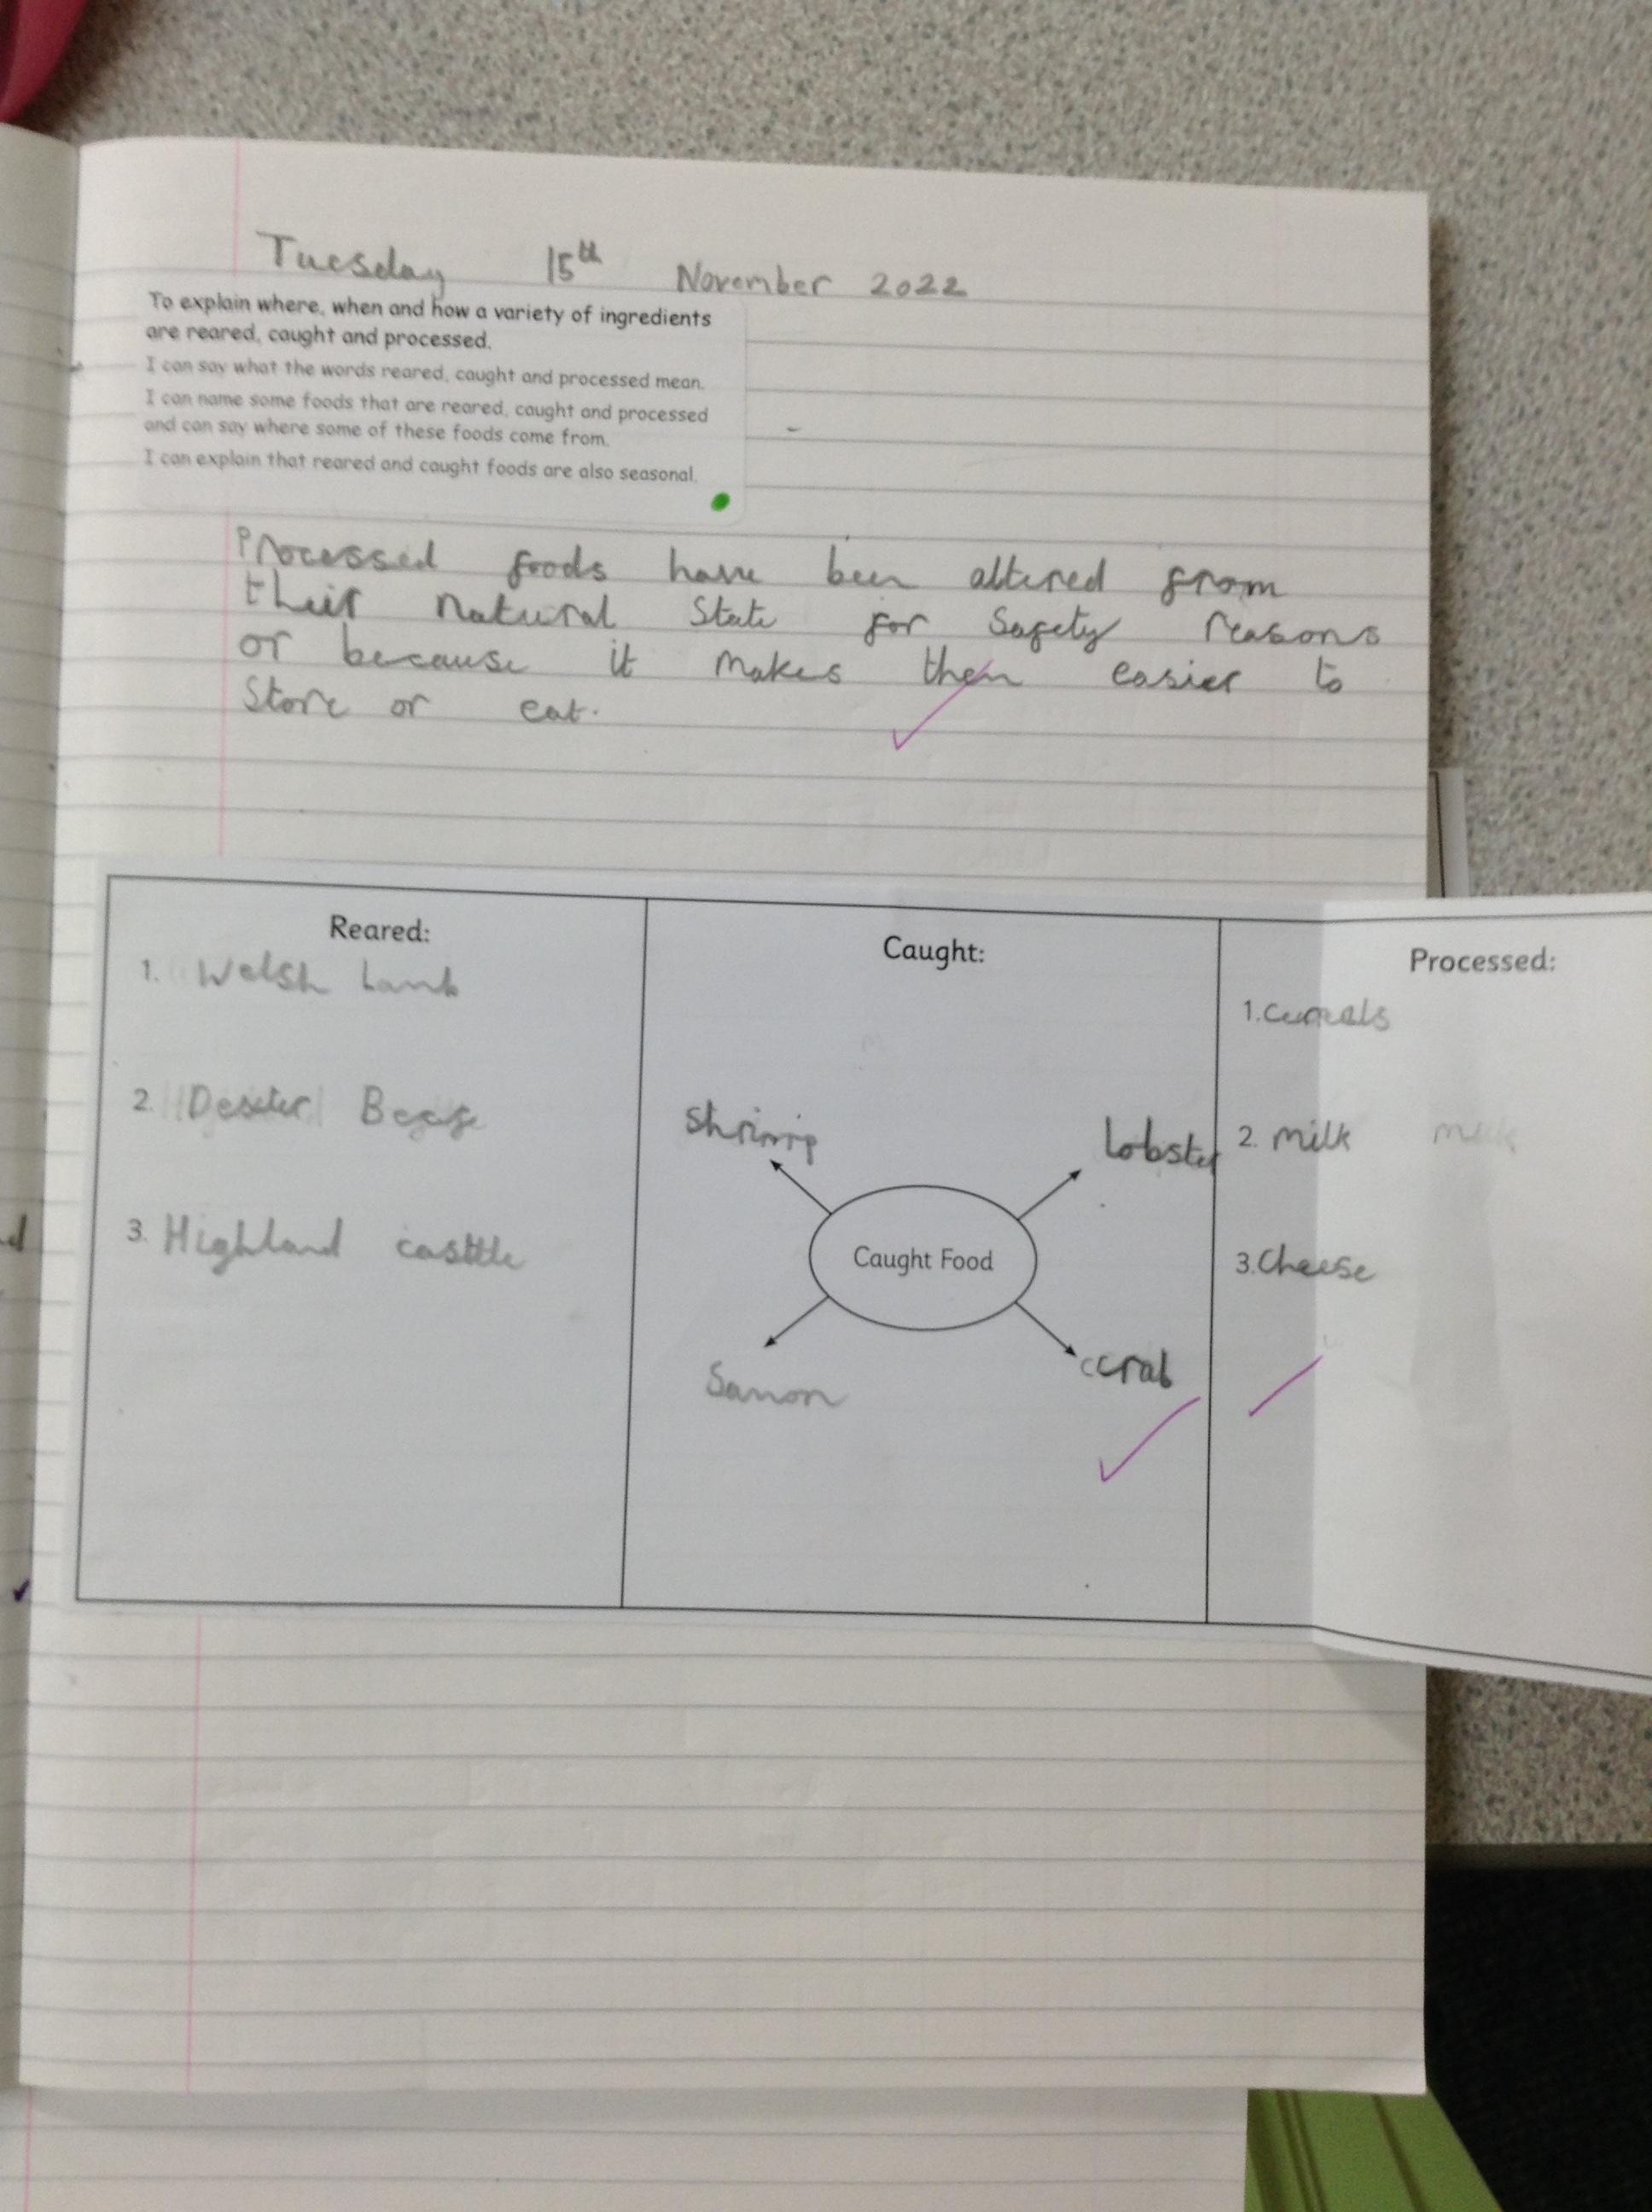 Tuesday 15th November 2022
To explain where, when and how a variety of ingredients
are reared, caught and processed.
I can say what the words reared, caught and processed mean.
I can name some foods that are reared, caught and processed
and can say where some of these foods come from.
I can explain that reared and caught foods are also seasonal.
Processed foods have been altered from
their natural State for Safety reasons
or because it makes them easier to
Store or eat.
Reared:
1. Welsh Lamb
2. Beef
3. Highland casttle
Caught:
shrimp
lobster
Caught Food
Samon
ccrab
Processed:
1. cereals
2. milk
3. cheese